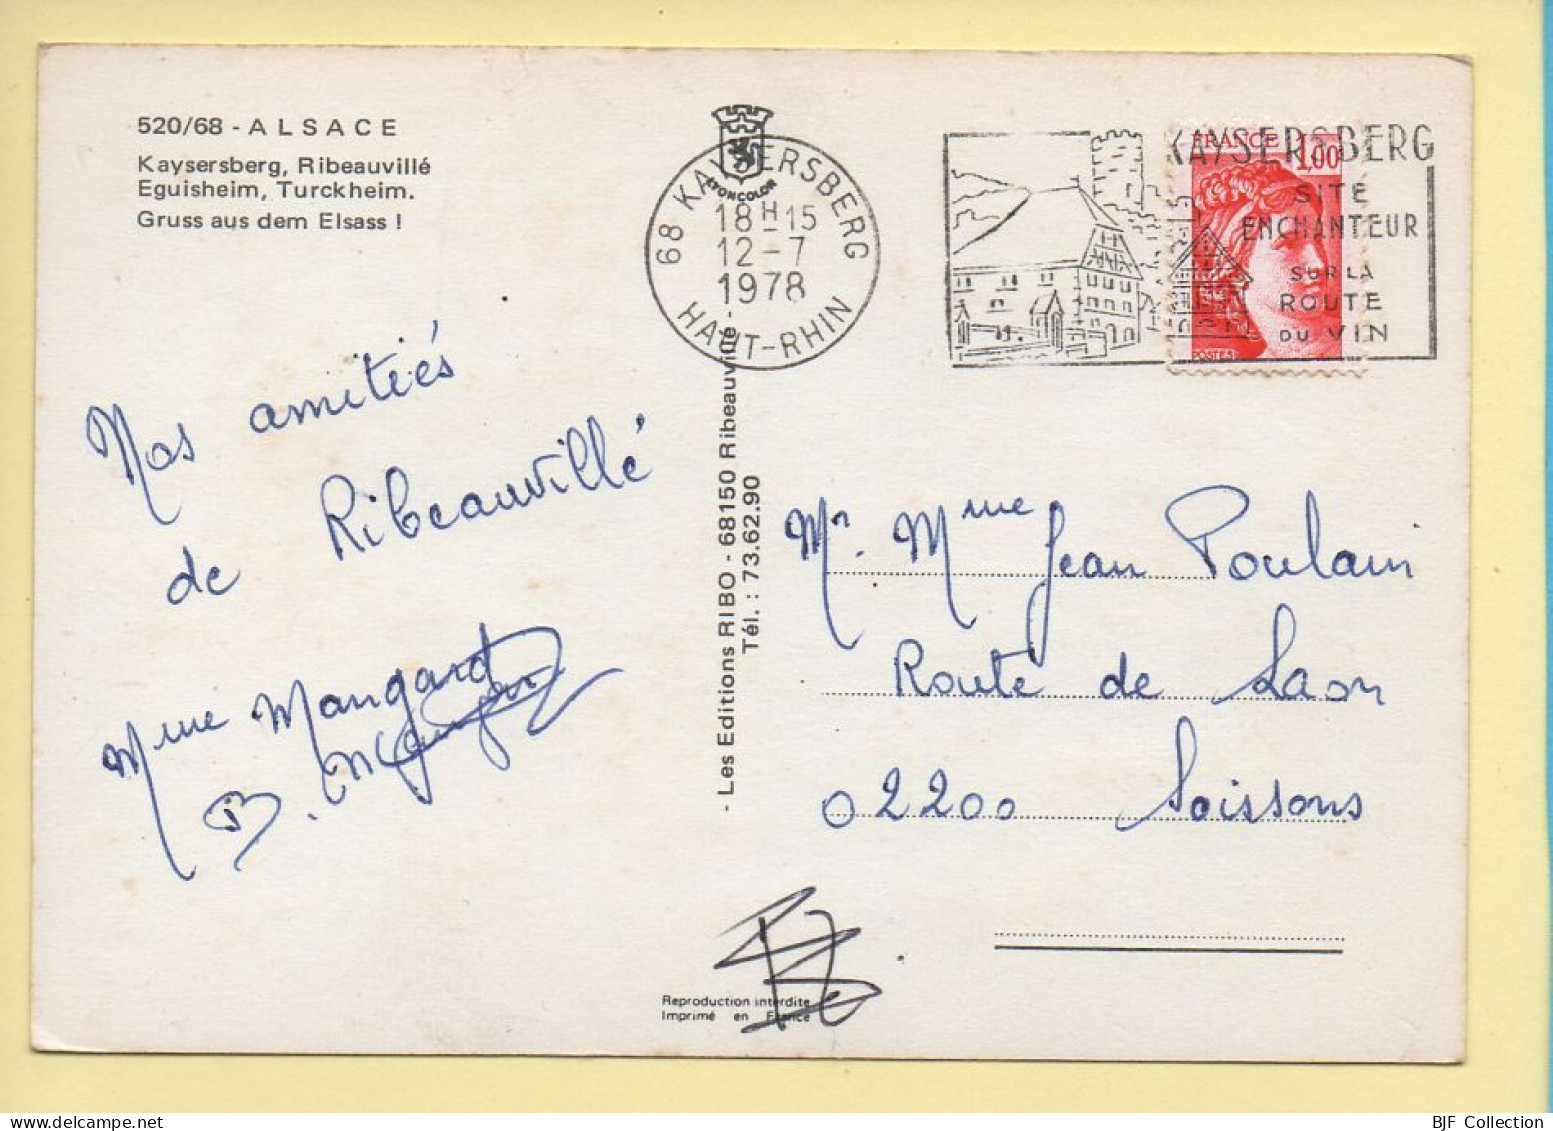 520/68 - ALSACE
Kaysersberg, Ribeauvillé
Eguisheim, Turckheim.
Gruss aus dem Elsass !
LYONCOLOR
68 KAYSERSBERG
18H15
12-7
1978
HAUT-RHIN
FRANCE
1,00
POSTES
KAYSERSBERG
SITE
ENCHANTEUR
SUR LA
ROUTE
DU VIN
Nos amitiés
de Ribeauvillé
Mme Mangard
B.
- Les Editions RIBO - 68150 Ribeauvillé -
Tél. : 73.62.90
Mr. Mme Jean Poulain
Route de Laon
02200 Soissons
Reproduction interdite
Imprimé en France
BJF Collection